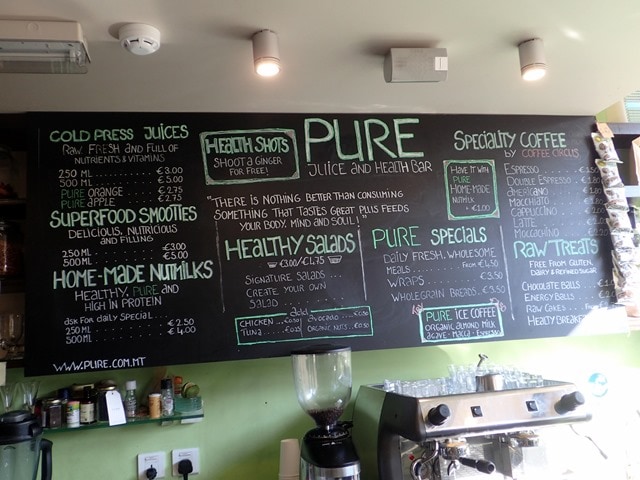 COLD PRESS JUICES
RAW, FRESH AND FULL OF
NUTRIENTS & VITAMINS
250 ML €3.00
500 ML €5.00
PURE ORANGE €2.75
PURE APPLE €2.75
SUPERFOOD SMOOTIES
DELICIOUS, NUTRICIOUS
AND FILLING
250 ML €3.00
500 ML €5.00
HOME-MADE NUTMILKS
HEALTHY, PURE AND
HIGH IN PROTEIN
ASK FOR DAILY SPECIAL...
250 ML €2.50
500 ML €4.00
WWW.PURE.COM.MT
HEALTH SHOTS
SHOOT A GINGER
FOR FREE!
PURE
JUICE AND HEALTH BAR
"THERE IS NOTHING BETTER THAN CONSUMING
SOMETHING THAT TASTES GREAT PLUS FEEDS
YOUR BODY, MIND AND SOUL!"
HEALTHY SALADS
SIGNATURE SALADS
CREATE YOUR OWN
SALAD
add
CHICKEN AVOCADO
TUNA ORGANIC NUTS
PURE SPECIALS
DAILY FRESH, WHOLESOME
MEALS FROM €4.50
WRAPS €3.50
WHOLEGRAIN BREADS €3.50
PURE ICE COFFEE
ORGANIC ALMOND MILK
AGAVE - MACCA - ESPRESSO
SPECIALITY COFFEE
BY COFFEE CIRCUS
HAVE IT WITH
PURE
HOME-MADE
NUTMILK
+ €1.00
ESPRESSO
DOUBLE ESPRESSO
AMERICANO
MACCHIATO
CAPPUCCINO
LATTE
MOCCACCINO
RAW TREATS
FREE FROM GLUTEN,
DAIRY & REFINED SUGAR
CHOCOLATE BALLS
ENERGY BALLS
RAW CAKES